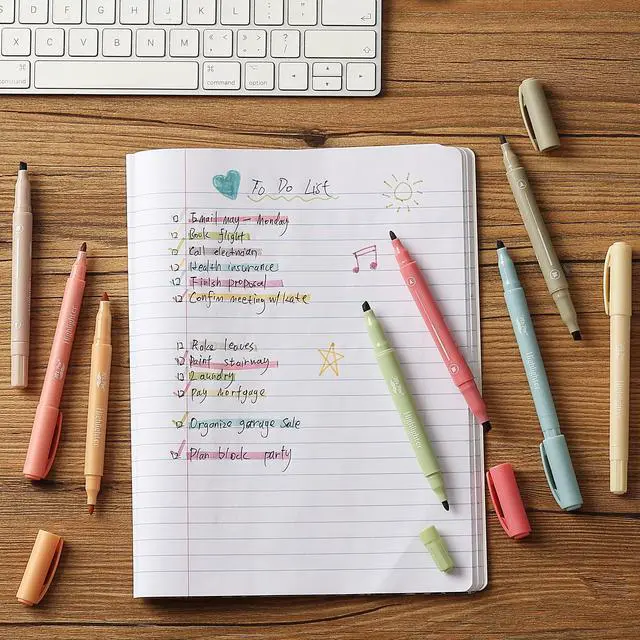 F G H J K L
X C V B N M < , > . ? /
command ⌘ command option
To Do List
Email may - Monday
Book flight
Call electrician
Health insurance
Finish proposal
Confim meeting w/ Kate
Rake leaves
Paint stairway
Laundry
Pay mortgage
Organize garage sale
Plan block party
Highlighter
Highlighter
Highlighter
Highlighter
Highlighter
Highlighter